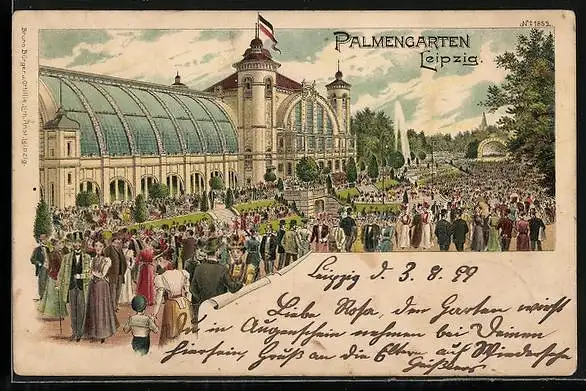 No 1852.
PALMENGARTEN
Leipzig.
Bruno Bürger u. Ottillie, Lith. Anst. Leipzig.
Leipzig d. 3. 8. 99
Liebe Rosa, der Garten wirst
Du in Augenschein nehmen bei Deinem
Hiersein, Gruß an die Eltern auf Wiedersehn